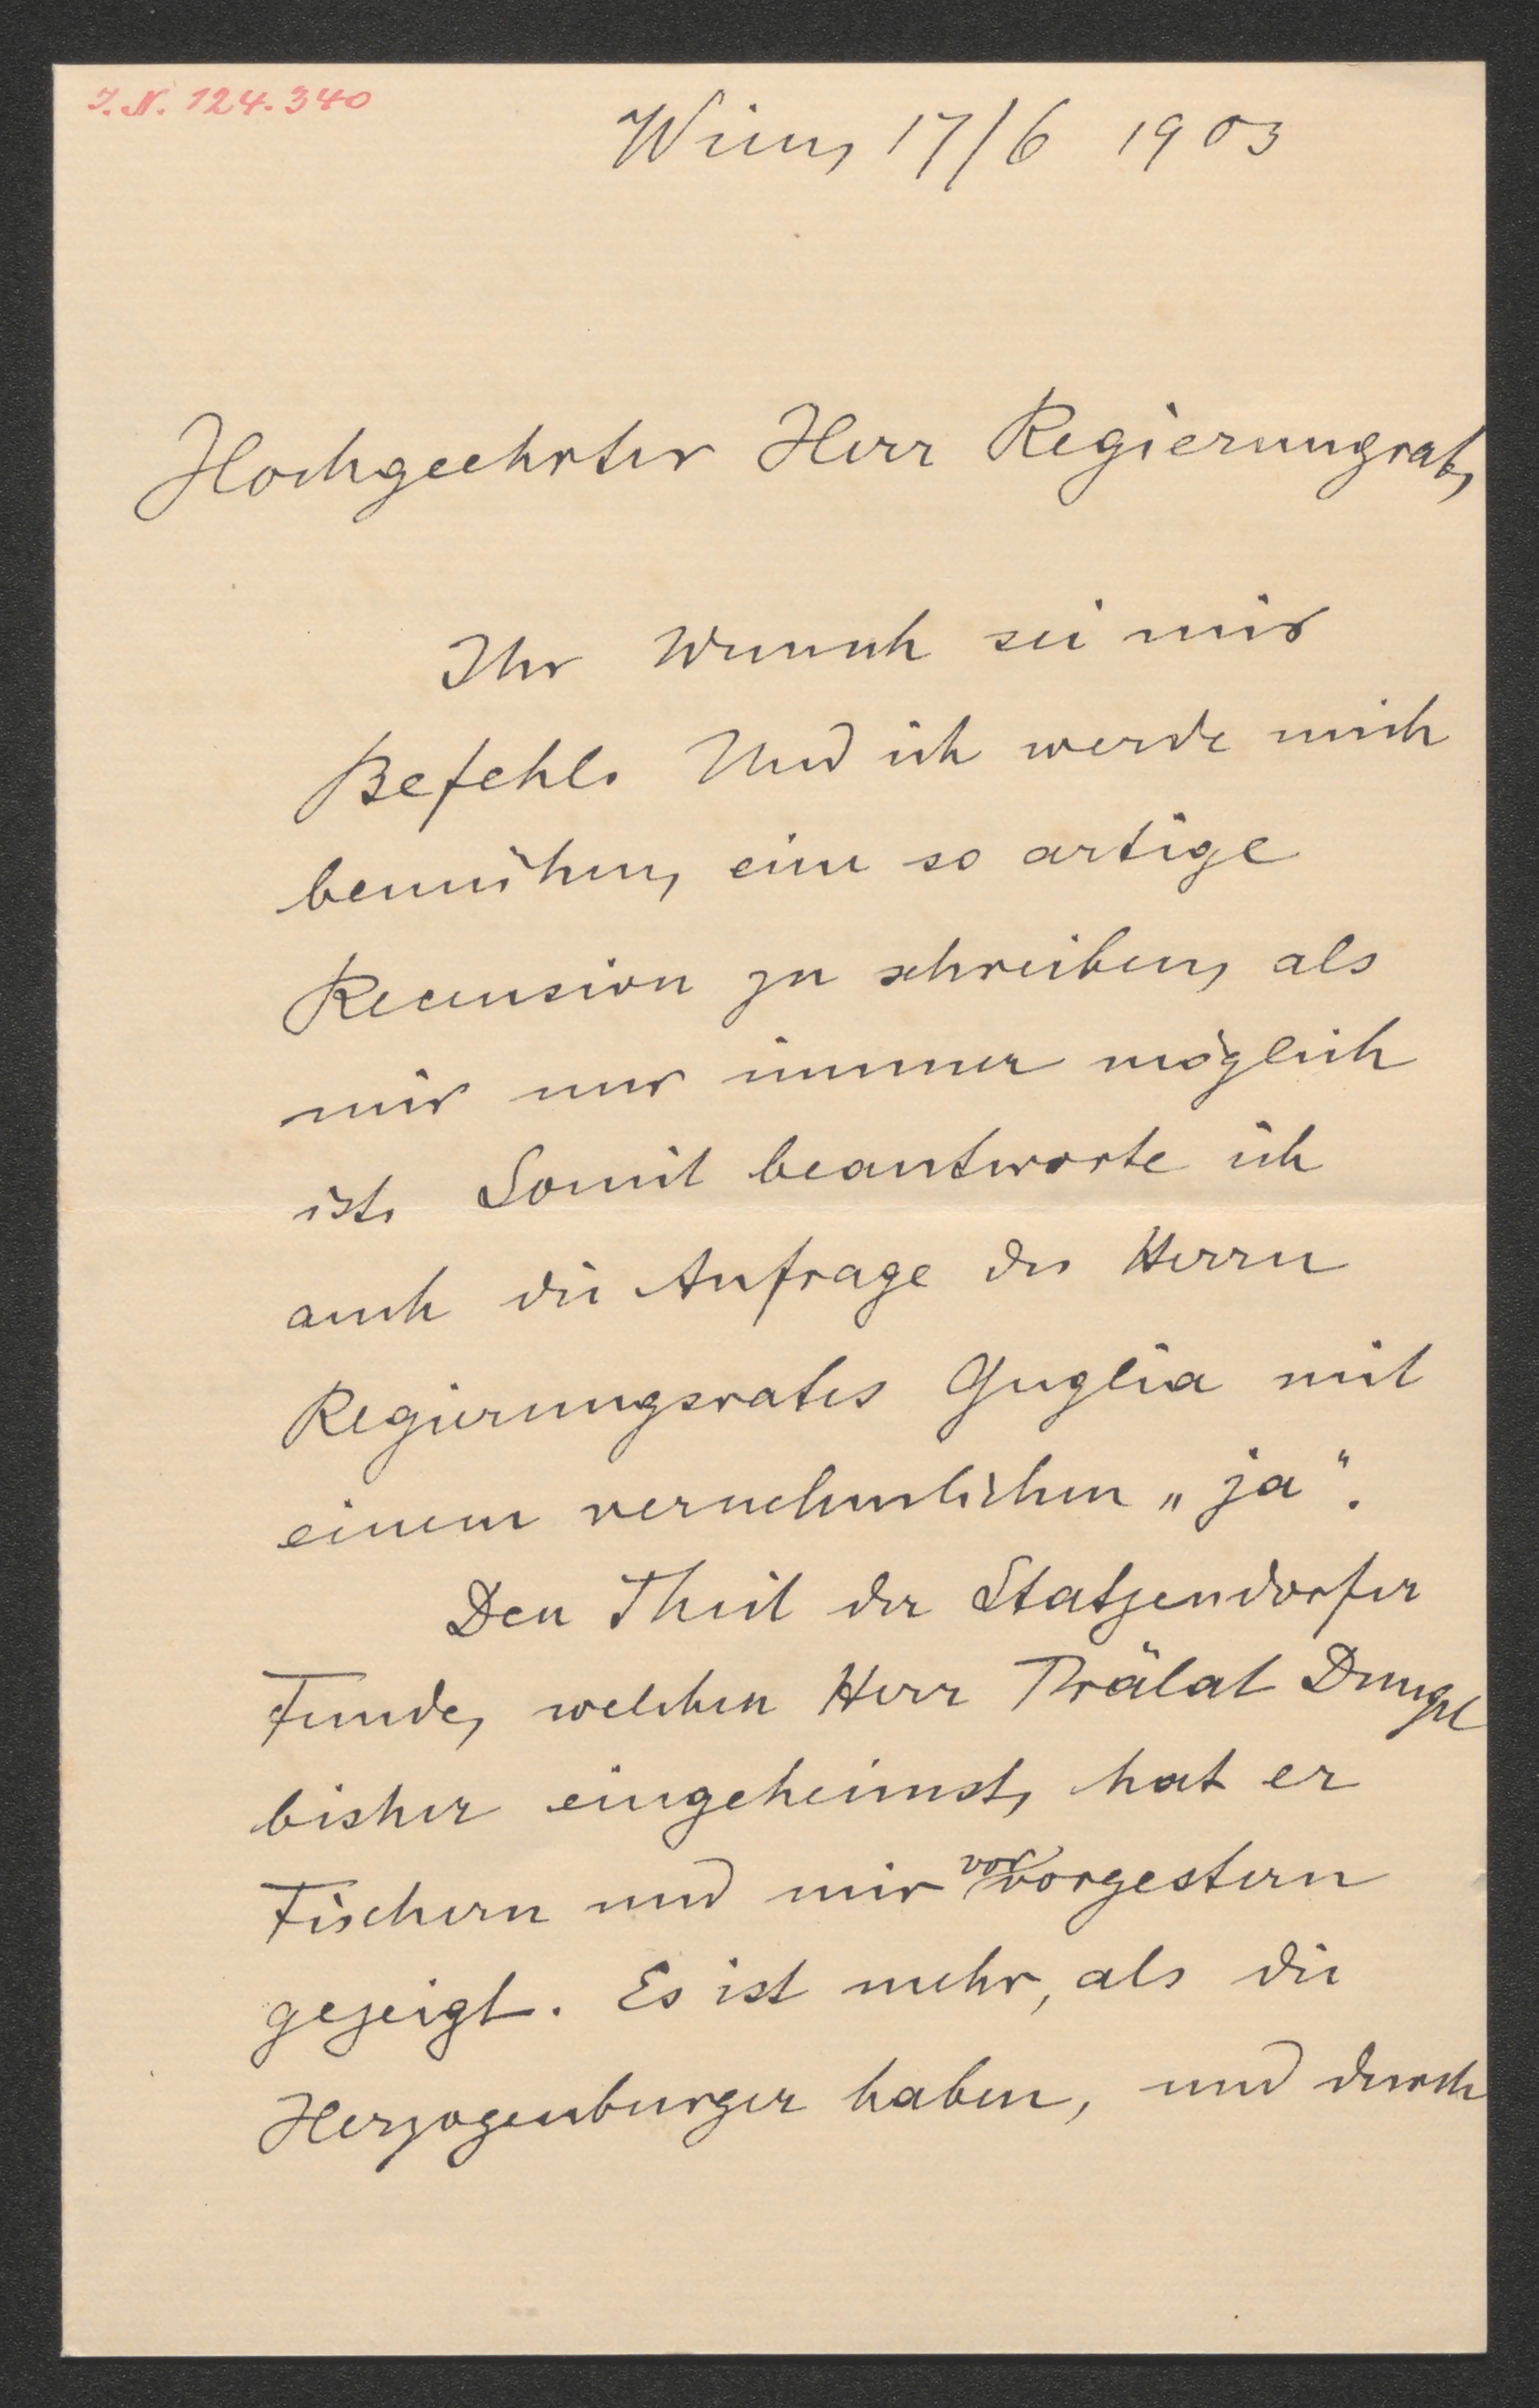 I.N. 124.340
Wien, 17/6 1903
Hochgeehrter Herr Regierungrat,
Ihr Wunsch sei mir
Befehl. Und ich werde mich
bemühen, eine so artige
Recension zu schreiben, als
mir nur immer möglich
ist. Somit beantworte ich
auch die Anfrage des Herrn
Regierungsrates Guglia mit
einem vernehmlichen „ja“.
Den Theil der Statzendorfer
Funde, welchen Herr Prälat Dungel
bisher eingeheimst, hat er
Fischern und mir vorvorgestern
gezeigt. Es ist mehr, als die
Herzogenburger haben, und durch